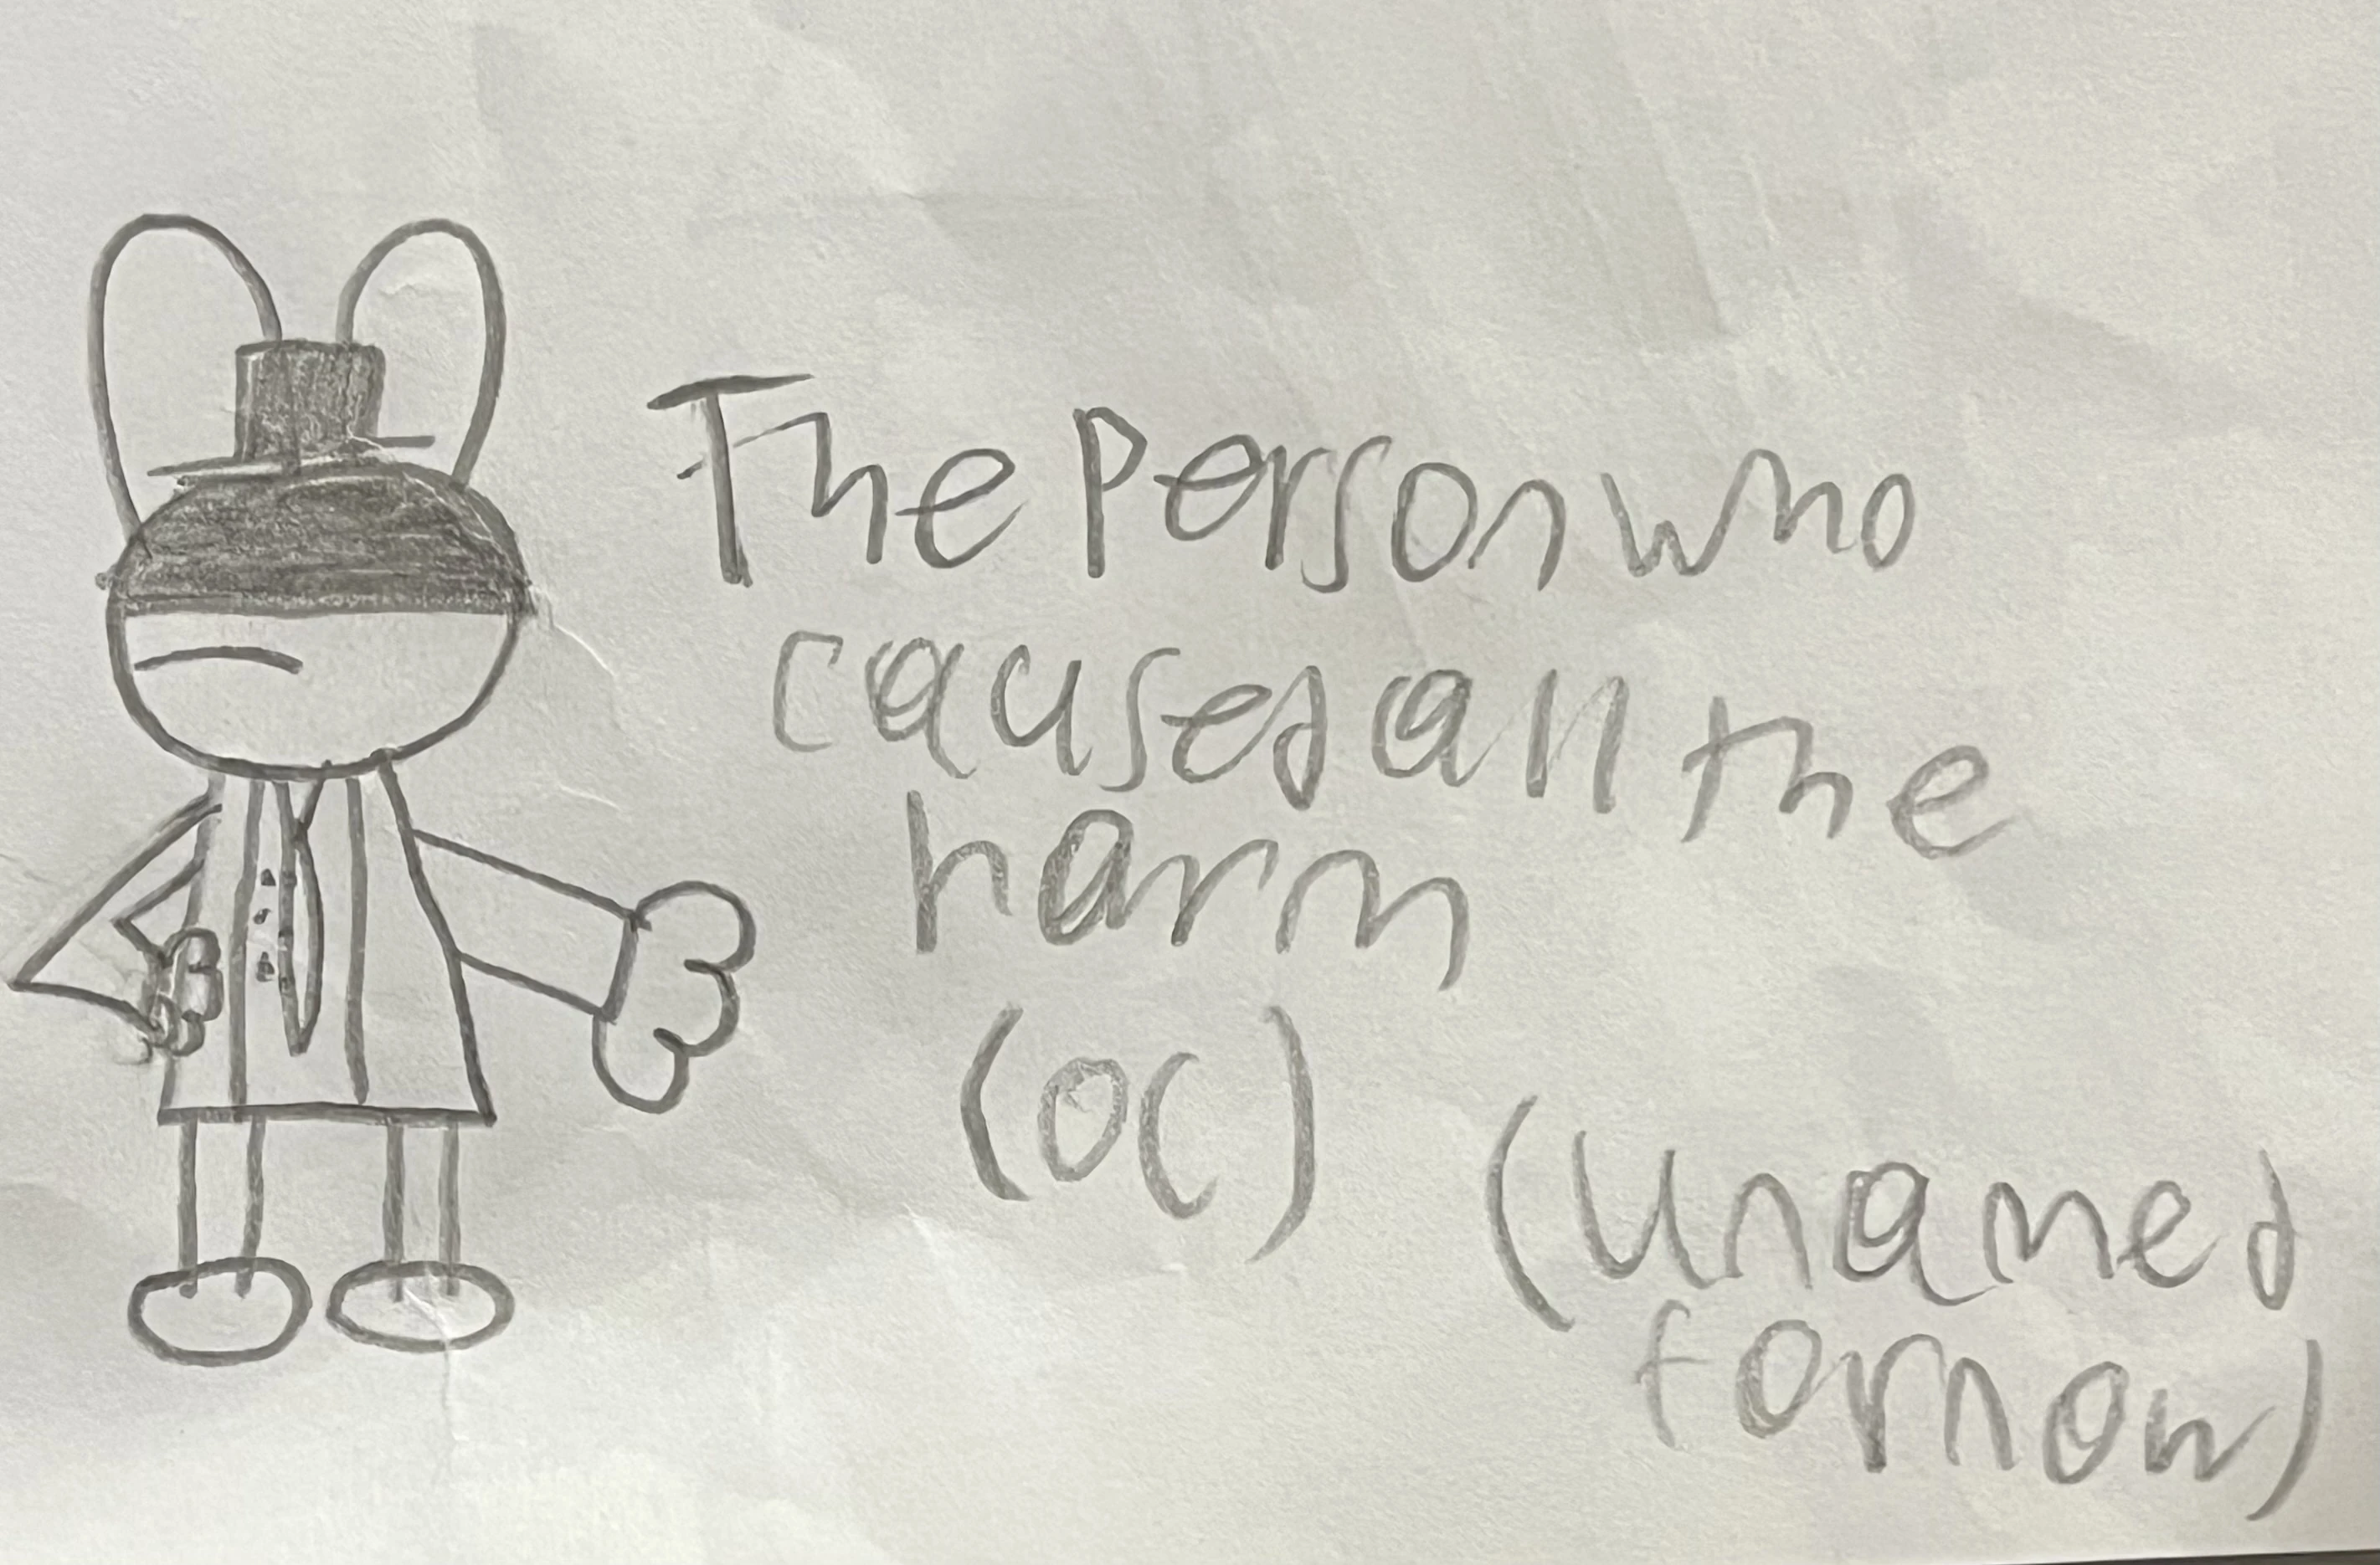 The person who
caused all the
harm
(OC)
(unamed
for now)